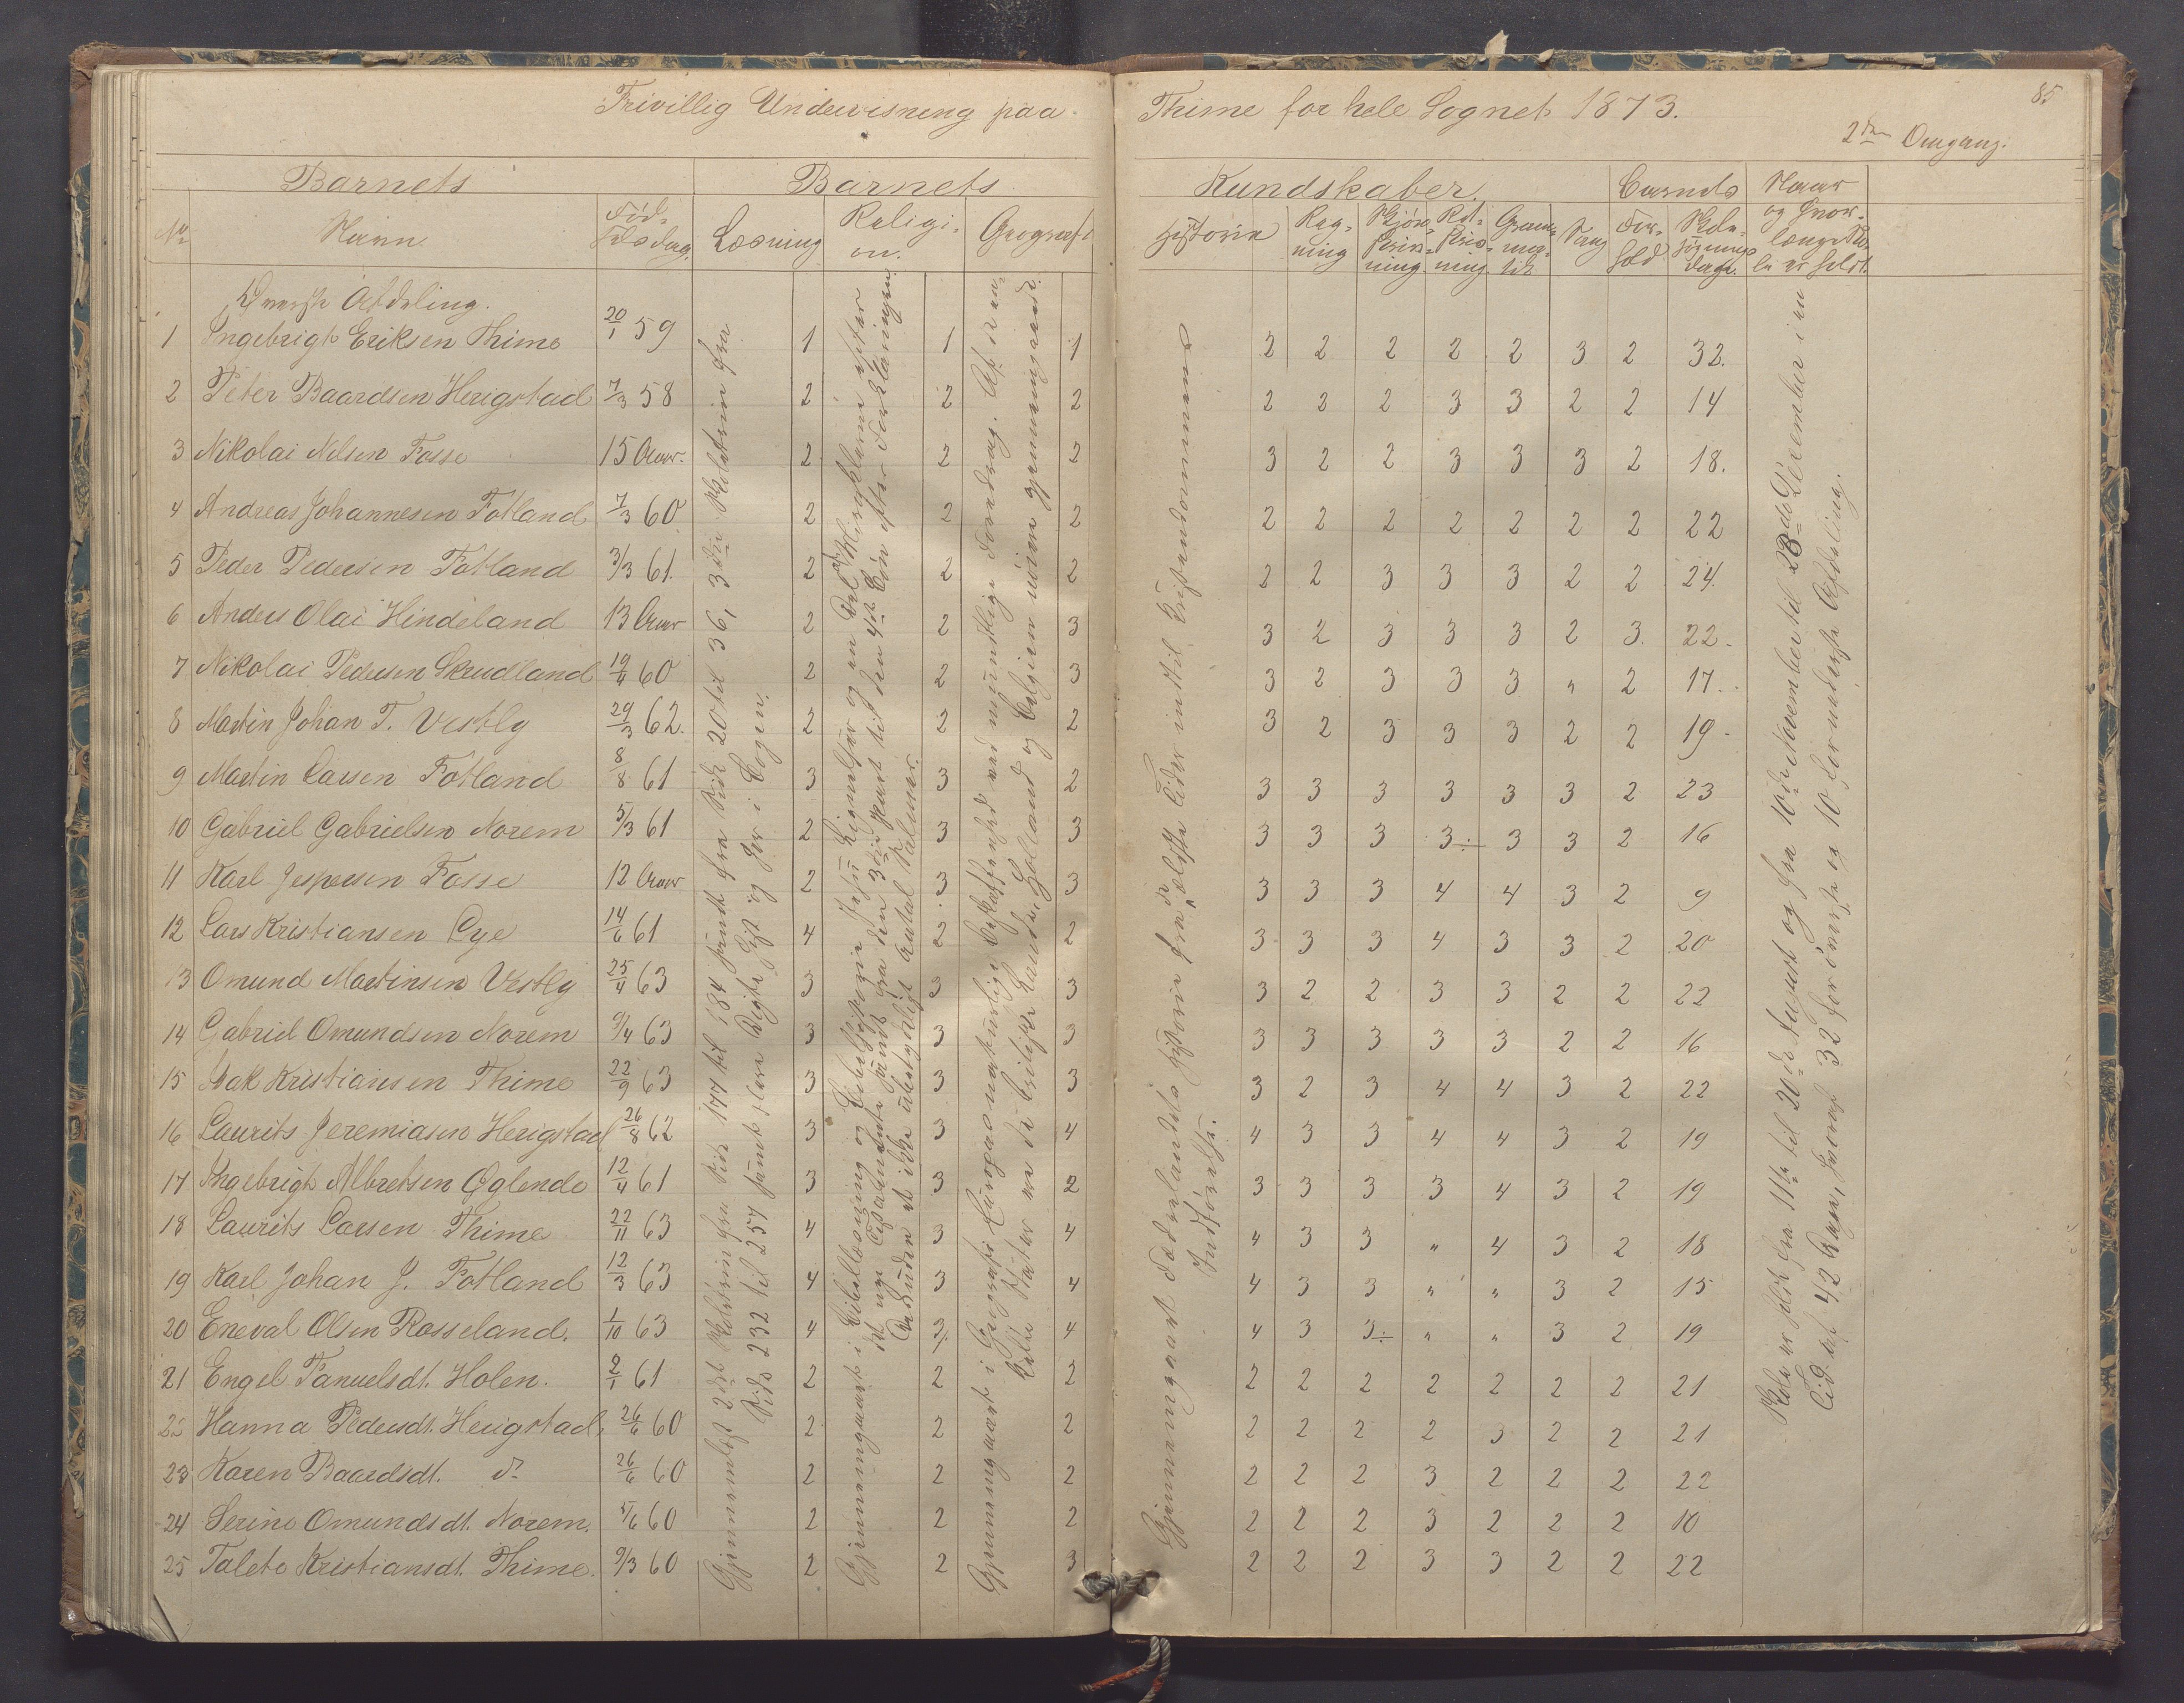 Frivillig Undervisning paa Thime for hele Sognet 1873.
85
2den Omgang.
Barnets Barnets Kundskaber. Barnets Naar og hvor-
No Navn Fød- selsdag. Læsning Religi- on. Geografi Historie Reg- ning Skjøn- skriv- ning. Ret- skriv- ning Gram- ma- tik Sang For- hold Skole- søgnings- dage. længe Sko- le er holdt.
Øverste Afdeling.
1 Ingebrigt Eriksen Thime 20/1 59 1 1 1 2 2 2 2 2 3 2 32.
2 Peter Baardsen Herigstad 7/3 58 2 2 2 2 2 2 3 3 2 2 14
3 Nikolai Nilsen Fosse 15 Aar. 2 2 2 3 2 2 3 3 3 2 18.
4 Andreas Johannesen Fotland 7/3 60 2 2 2 2 2 2 2 2 2 2 22
5 Peder Pedersen Fotland 3/3 61. 2 2 2 2 2 3 3 3 2 2 24.
6 Anders Olai Hindeland 13 Aar 2 2 3 3 2 3 3 3 2 3. 22.
7 Nikolai Pedersen Skrudland 19/4 60 2 2 3 3 2 3 3 3 " 2 17.
8 Martin Johan T. Vestly 29/3 62. 2 2 2 3 2 3 3 3 2 2 19.
9 Martin Larsen Fotland 8/8 61 3 3 2 3 3 3 3 3 3 2 23
10 Gabriel Gabrielsen Norem 5/3 61 2 3 3 3 3 3 3÷ 3 3 2 16
11 Karl Jespersen Fosse 12 Aar 2 3 3 3 3 3 4 4 3 2 9
12 Lars Kristiansen Lye 14/6 61 4 2 2 3 3 3 4 3 3 2 20
13 Omund Martinsen Vestly 25/4 63 3 3 3 3 2 2 3 3 2 2 22
14 Gabriel Omundsen Norem 9/4 63 3 3 3 3 3 3 3 3 2 2 16
15 Isak Kristiansen Thime 22/9 63 3 3 3 3 2 3 4 4 3 2 22
16 Laurits Jeremiasen Herigstad 26/8 62 3 3 4 4 3 3 4 4 3 2 19
17 Ingebrigt Albretsen Oglende 12/4 61 3 3 2 3 3 3 3 4 3 2 19
18 Laurits Larsen Thime 22/11 63 4 3 4 4 3 3 " 4 3 2 18
19 Karl Johan J. Fotland 12/3 63 4 3 4 4 3 3 " " 3 2 15
20 Eneval Olsen Rosseland. 1/10 63 4 3 4 4 3 3÷ " " 3 2 19
21 Engel Tanuelsdt. Holen. 2/1 61 2 2 2 2 2 2 2 2 2 2 21
22 Hanna Pedersdt. Herigstad. 26/6 60 2 2 2 2 2 2 2 3 2 2 21
23 Karen Baardsdt. do 26/6 60 2 2 2 2 2 2 3 2 2 2 22
24 Serine Omundsdt. Norem. 5/6 60 2 2 2 2 2 2 3 2 2 2 10
25 Talete Kristiansdt. Thime. 9/3 60 2 2 3 2 2 2 3 3 2 2 22
Gjennemlæst 2det Skoletrin fra Side 177 til 184 samt fra Side 20 til 36, 3die Skoletrin fra
Side 232 til 257 samt flere Digte hist og her i Bogen.
Gjennemgaaet i Bibellæsning og Bibelhistorie Jesu Lignelser og en Del af Miraklerne efter
det nye Testamente samt fra den 3die Part til den 4de Bøn efter Forklaringen
Desuden et ikke ubetydeligt Antal Salmer.
Gjennemgaaet i Geografi Europas naturlige Beskaffenhed ved mundtlige Foredrag. Af de en-
kelte Stater ere de Britiske Lande, Holland og Belgien nøiere gjennemgaaede.
Gjennemgaaet Fædrelandets Historie fra de ældste Tider indtil Kristendommens
Indførelse.
Skole er holdt fra 11te til 20de August og fra 10de November til 23de December i en
Tid af 42 Dage, hvoraf 32 for øverste og 10 for nederste Afdeling.